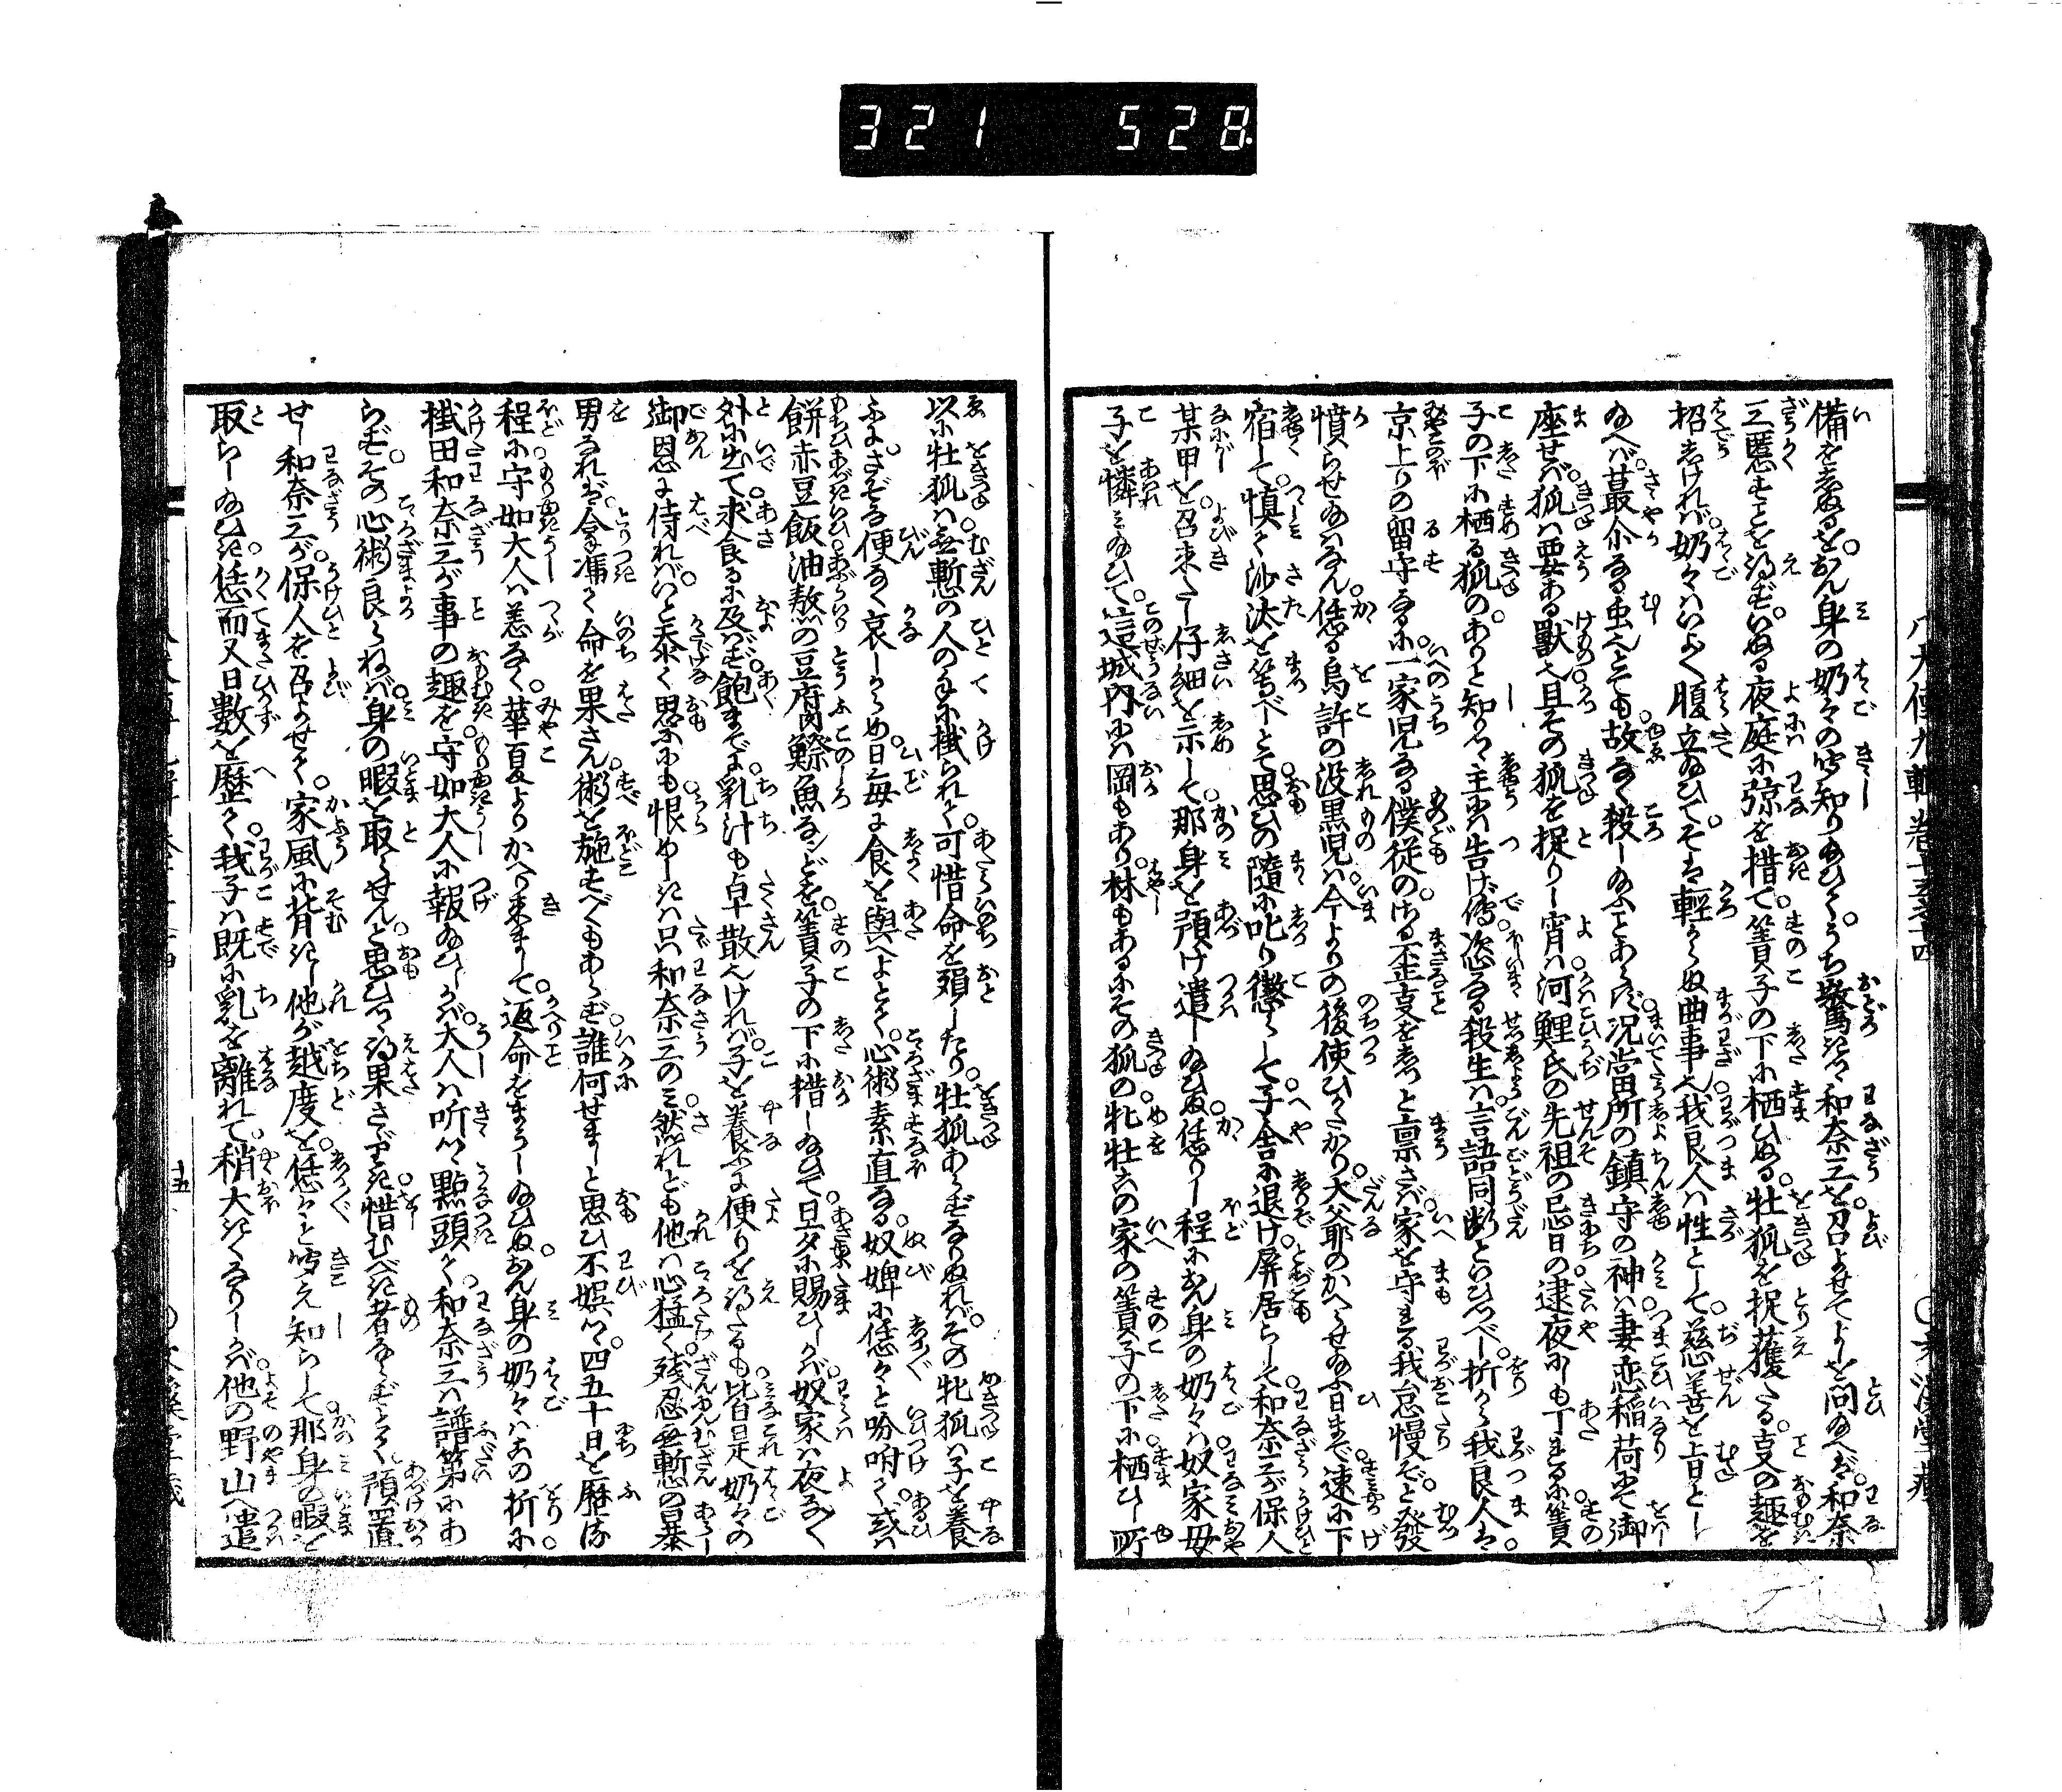 321 528
八犬傳九輯巻十
備を知るを。おん身の奶々の听知り給ひて。うち驚きつゝ和奈三を。召よせてよしを問給へば。和奈
三匿すことを得ず。いぬる夜庭に弶を措て。簀子の下に栖ひぬる。牡狐を捉獲たる。事の趣を
招しければ。奶々はいよゝ腹立給ひて。そは輕からぬ曲事也。我良人は性として。慈善を旨とし
給へば。蕞尒なる虫也とても。故なく殺し給ふことあらず。况當所の鎮守の神は。妻恋稲荷にて御
座せば。狐は要ある獸也。且その狐を捉りし宵は。河鯉氏の先祖の忌日の。逮夜にも丁れるに。簀
子の下に栖る狐の。ありと知りつゝ主にも告げず。恣なる殺生は。言語同断といひつべし。折から我良人は。
京上りの留守なるに。一家児なる僕従の。さる歪事をしつと禀さば。家を守れる我怠慢ぞと。發
憤らせ給はなん。恁る烏許の没黒児は。今よりの後使ひがたかり。大爺のかへらせ給ふ日まで。速に下
宿して。慎て沙汰を等べしとて。思ひの隨に叱り懲らして。子舎に退け屏居らして。和奈三が保人
某甲を。召来たし仔細を示して。那身を預け遣し給ひぬ。恁りし程におん身の奶々は。奴家母
子を憐み給ひて。這城内には岡もあり。林もあるにその狐の。牝牡六の家の簀子の下に。栖ひし所
以に牡狐は。無慙の人の手に掛られて。可惜命を殞したり。牡狐あらずなりぬれば。その牝狐は子を養
ふに。さぞな便なく哀しからめ。日毎に食を與へよとて。心術素直なる。奴婢に恁々と吩咐て。或は
餅赤豆飯。油熬の豆腐。鰶魚なンどを。簀子の下に措し給ひて。旦夕に賜ひしかば。奴家は夜なく
外に出て。求食るに及ばず。飽まで乳汁も卓散也ければ。子を養ふに便りを得たるも。皆是奶々の
御恩に侍れば。いと忝く思ふにも。恨めしきは只和奈三のみ。然れども他は心猛く。残忍無慙の暴
男なれば。拿憑て命を果さん。術を施すべくもあらず。誰何せましと思ひ不娯つゝ。四五十日を歴る
程に。守如大人は恙なく。華夏よりかへり来まして。返命をまうし給ひぬ。おん身の奶々はこの折に。
掛田和奈三が事の趣を。守如大人に報給ひしかば。大人は听つゝ點頭て。和奈三は譜第にあ
らず。その心術良らねば。身の暇を取らせんと。思ひつゝ得果さゞりき。惜むべき者ならずとて。預置
せし和奈三が。保人を召よせて。家風に背きし他が越度を。恁々と听え知らして。那身の暇を
取らし給ひき。恁而又日數を歴て。我子は既に乳を離れて。稍大きくなりしかば。他の野山へ遣
十五